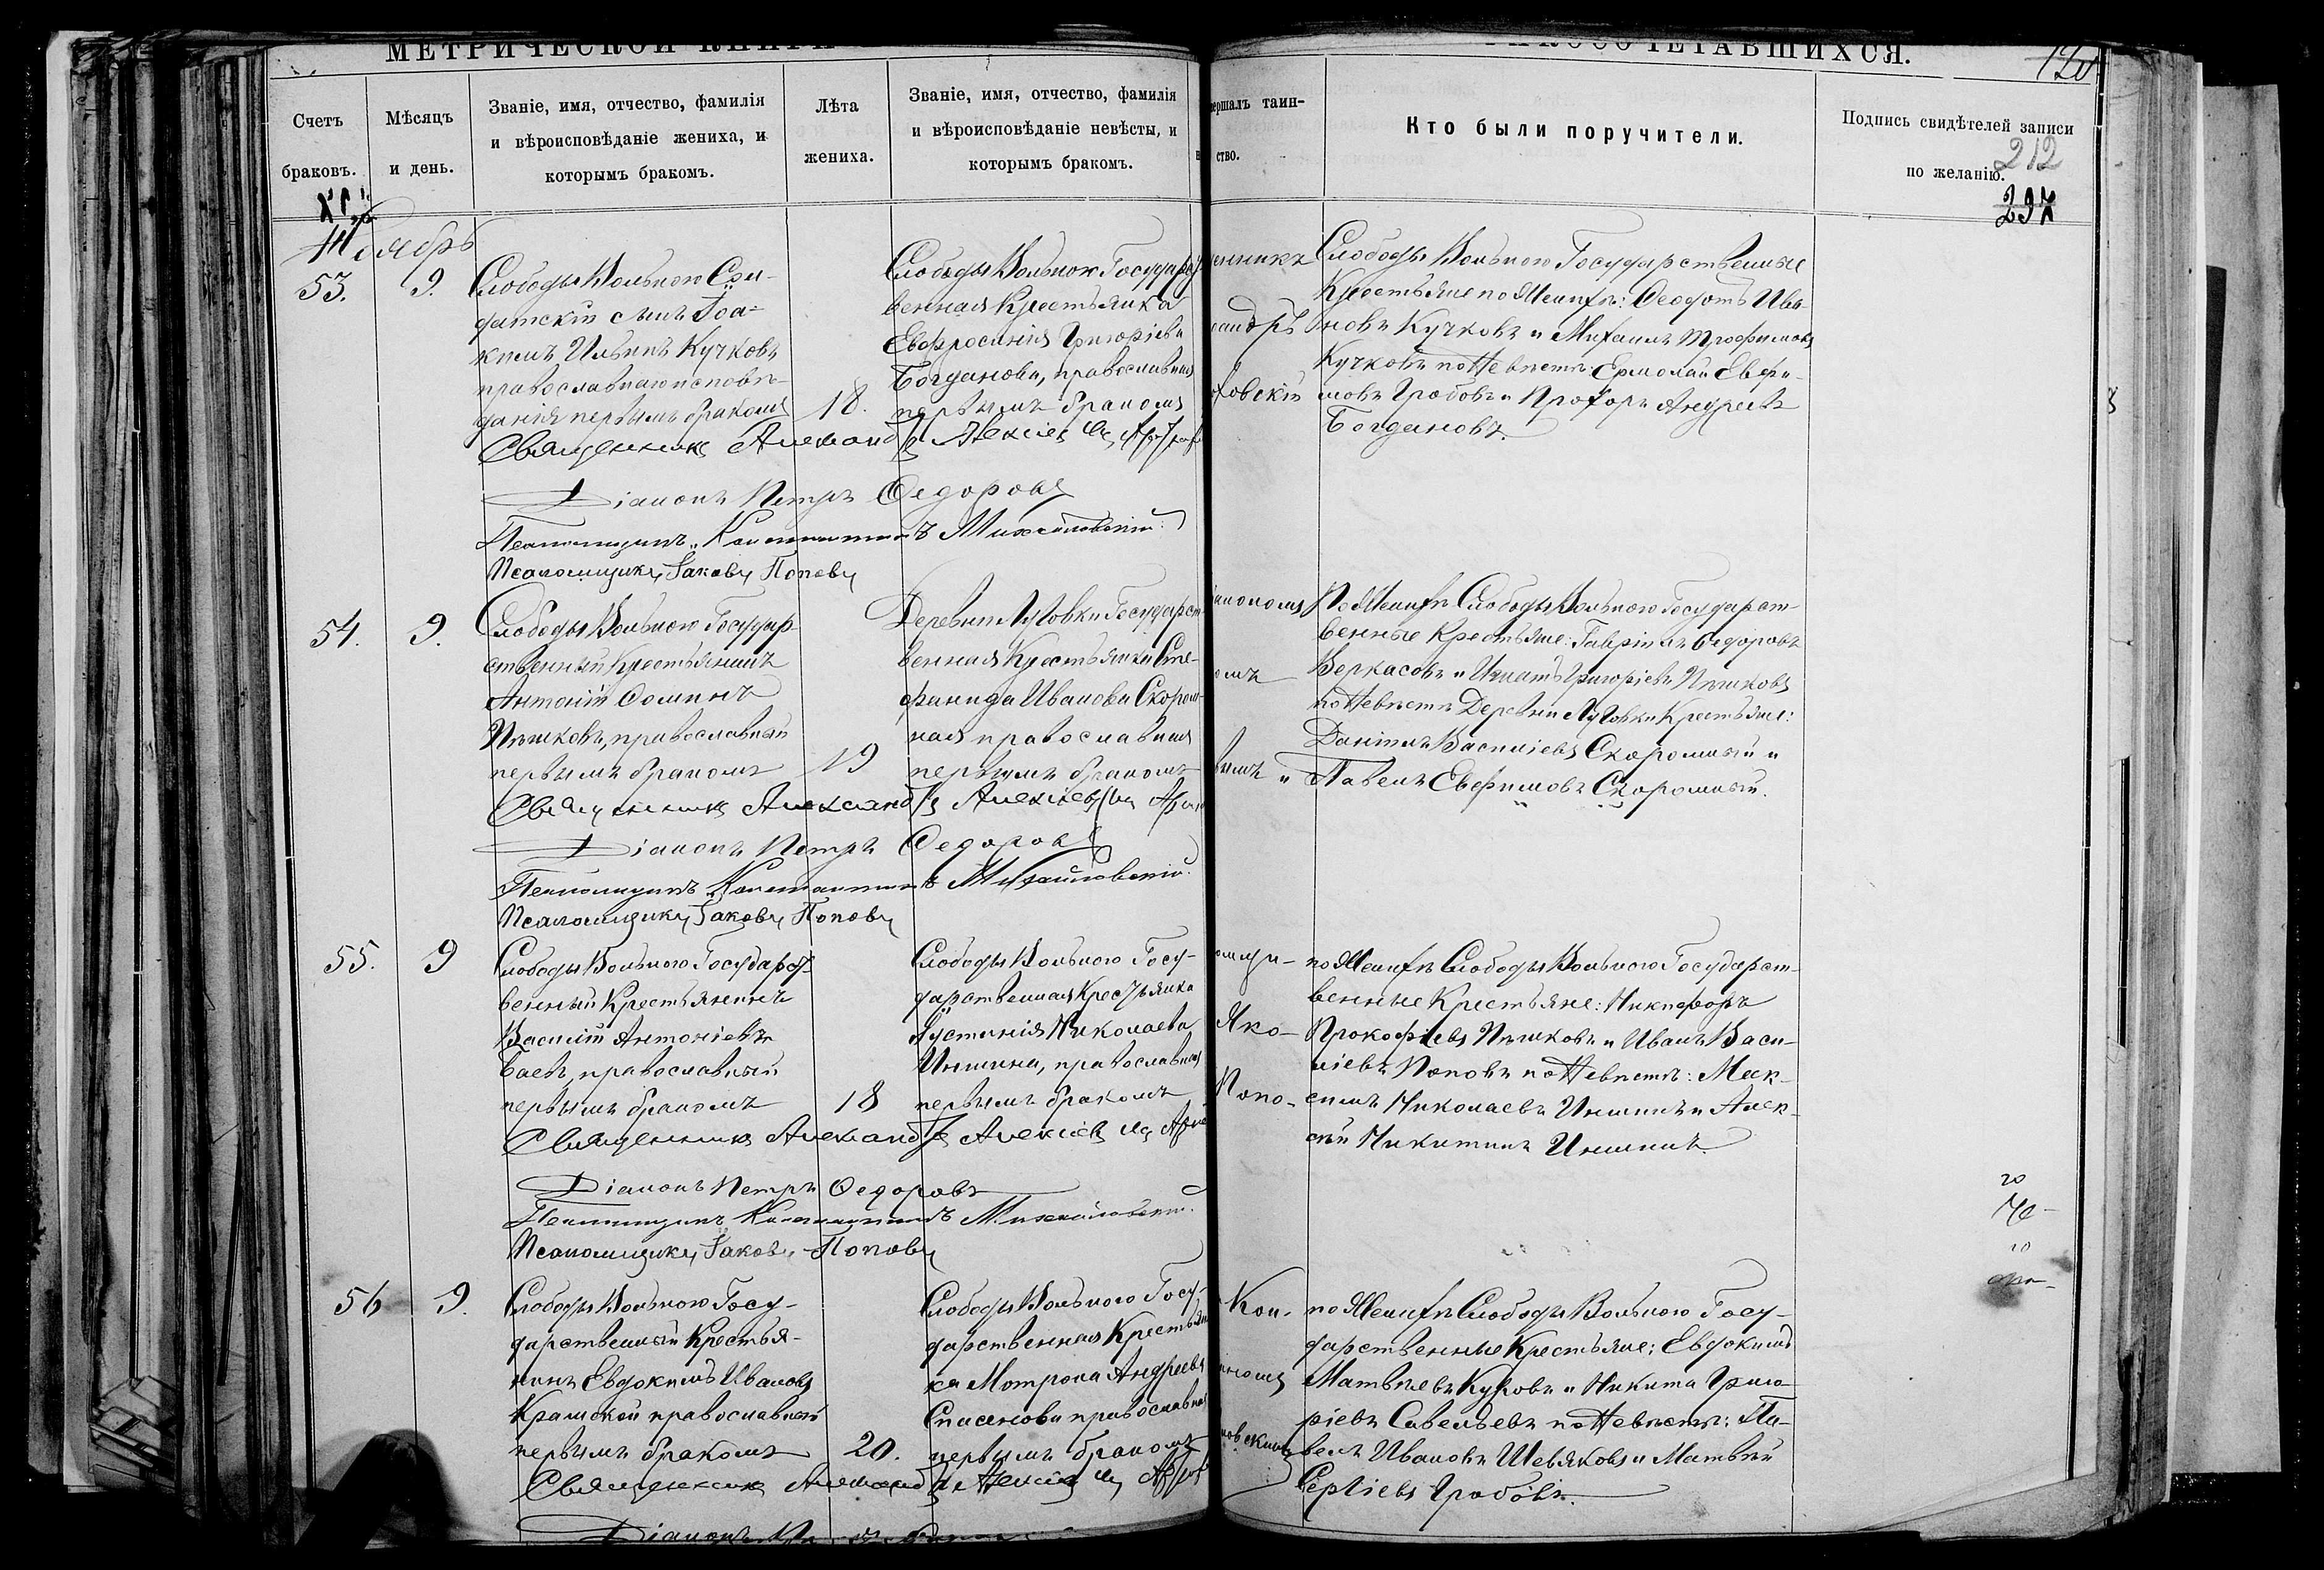 МЕТРИЧЕСКОЙ КНИГИ
ЧЕТАВШИХСЯ.
Счетъ
браковъ.
Мѣсяцъ
и день.
Званіе, имя, отчество, фамилія
и вѣроисповѣданіе жениха, и
которымъ бракомъ.
Лѣта
жениха.
Званіе, имя, отчество, фамилія
и вѣроисповѣданіе невѣсты, и
которымъ бракомъ.
вершалъ таин-
ство.
Кто были поручители.
Подпись свидѣтелей записи
по желанію.
212
237
Ноябрь
53.
9.
Слободы Вольного Сол-
датскій сынъ Іоа-
кимъ Ильинъ Кучковъ
православнаго исповѣ-
данія первымъ бракомъ
18.
Слободы Вольного Государст
венная Крестьянка
Евфросинія Григоріева
Богданова, православная
первымъ бракомъ
Слободы Вольного Государственные
Крестьяне по Женихѣ: Феодотъ Ива-
новъ Кучковъ и Михаилъ Трофимовъ
Кучковъ по Невѣстѣ: Ермолай Евфи-
мовъ Гробовъ и Прохоръ Андреевъ
Богдановъ.
Священникъ Александръ Алексіевъ
Діаконъ Петръ Федоровъ
Псаломщикъ Константинъ Михайловскій
Псаломщикъ Іаковъ Поповъ
54.
9.
Слободы Вольного Государ-
ственный Крестьянинъ
Антоній Фоминъ
Пѣшковъ, православный
первымъ бракомъ
19
Деревни Луговки Государст
венная Крестьянка Сте-
фанида Иванова Скором-
ная православная
первымъ бракомъ
По Женихѣ Слободы Вольного Государст-
венные Крестьяне: Гавріилъ Федоровъ
Веркасовъ и Игнатъ Григоріевъ Пѣшковъ
по Невѣстѣ Деревни Луговки Крестьяне:
Даніилъ Василіевъ Скоромный и
Павелъ Евфимовъ Скоромный.
Священникъ Александръ Алексіевъ
Діаконъ Петръ Федоровъ
Псаломщикъ Константинъ Михайловскій
Псаломщикъ Іаковъ Поповъ
55.
9
Слободы Вольного Государст
венный Крестьянинъ
Василій Антоніевъ
Баевъ, православный
первымъ бракомъ
18
Слободы Вольного Госу-
дарственная Крестьянка
Іустинія Николаева
Иншина, православная
первымъ бракомъ
по Женихѣ Слободы Вольного Государст-
венные Крестьяне: Никифоръ
Прокофіевъ Пѣшковъ и Иванъ Васи-
ліевъ Поповъ по Невѣстѣ: Мак-
симъ Николаевъ Иншинъ и Алек-
сѣй Никитинъ Иншинъ.
Священникъ Александръ Алексіевъ
Діаконъ Петръ Федоровъ
Псаломщикъ Константинъ Михайловскій
Псаломщикъ Іаковъ Поповъ
56
9.
Слободы Вольного Госу-
дарственный Крестья-
нинъ Евдокимъ Ивановъ
Крамской православный
первымъ бракомъ
20.
Слободы Вольного Госу-
дарственная Крестьян
ка Мотрона Андреева
православная
первымъ бракомъ
по Женихѣ Слободы Вольного Госу-
дарственные Крестьяне: Евдокимъ
Матвѣевъ и Никита Григо-
ріевъ Савельевъ по Невѣстѣ: Па-
велъ Ивановъ Шевляковъ и Матвѣй
Сергіевъ Гробовъ.
Священникъ Александръ Алексіевъ
Діаконъ